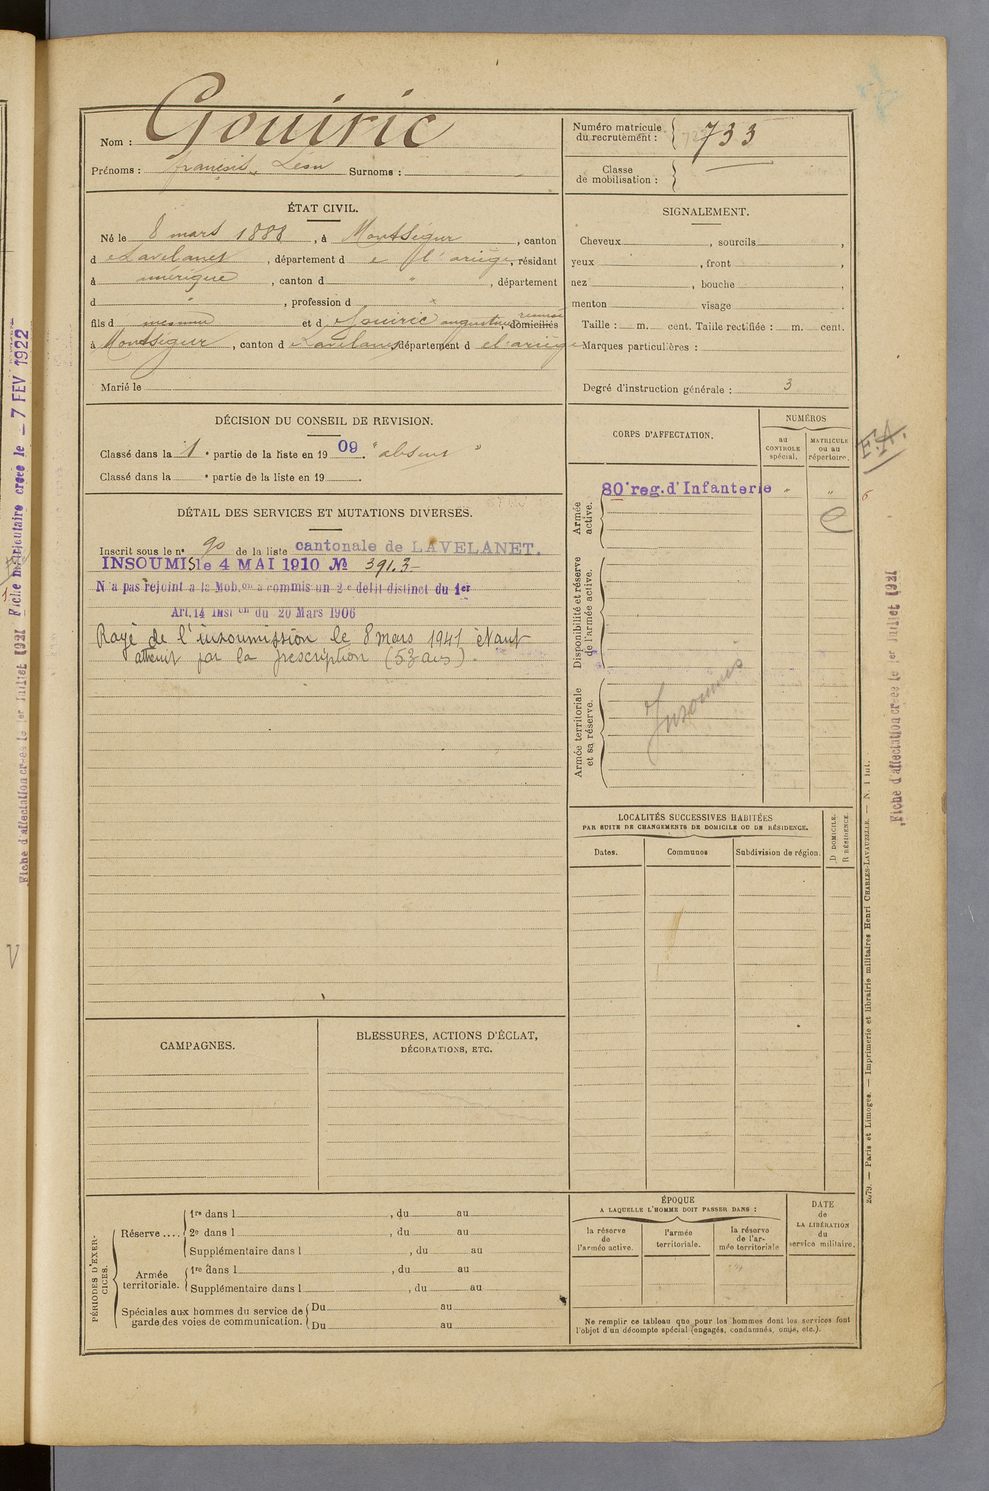 Nom : Gouiric
Prénoms : françois, Léon Surnoms :
Numéro matricule du recrutement : 733
Classe de mobilisation :
ÉTAT CIVIL.
Né le 8 mars 1888, à Montségur, canton
d e Lavelanet, département d e l'ariège, résidant
à amérique, canton d " , département
d " , profession d "
fils d inconnu et d Gouiric augustine, domiciliés
à Montségur, canton d e Lavelanet département d e l'ariège
Marié le
SIGNALEMENT.
Cheveux , sourcils ,
yeux , front ,
nez , bouche ,
menton visage .
Taille : m. cent. Taille rectifiée : m. cent.
Marques particulières :
Degré d'instruction générale : 3
DÉCISION DU CONSEIL DE REVISION.
Classé dans la 1 e partie de la liste en 1909. "absent"
Classé dans la e partie de la liste en 19 .
DÉTAIL DES SERVICES ET MUTATIONS DIVERSES.
Inscrit sous le n° 90 de la liste cantonale de LAVELANET.
INSOUMIS le 4 MAI 1910 № 391.3
N'a pas rejoint a la Mob.on a commis un 2e delit distinct du 1er
Art. 14 Inst on du 20 Mars 1906
Rayé de l'insoumission le 8 mars 1941 étant
atteint par la prescription (53 ans).
CORPS D'AFFECTATION.
NUMÉROS
au CONTROLE spécial.
MATRICULE ou au répertoire.
Armée active.
80e reg. d'Infanterie " "
e
Disponibilité et réserve de l'armée active.
Armée territoriale et sa réserve.
Insoumis
F.A.
LOCALITÉS SUCCESSIVES HABITÉES
PAR SUITE DE CHANGEMENTS DE DOMICILE OU DE RÉSIDENCE.
Dates. Communes Subdivision de région.
D DOMICILE.
R RÉSIDENCE.
CAMPAGNES.
BLESSURES, ACTIONS D'ÉCLAT,
DÉCORATIONS, ETC.
PÉRIODES D'EXERCICES.
Réserve .... 1re dans l , du au
2e dans l , du au
Supplémentaire dans l , du au
Armée territoriale. 1re dans l , du au
Supplémentaire dans l , du au
Spéciales aux hommes du service de garde des voies de communication. Du au
Du au
ÉPOQUE
A LAQUELLE L'HOMME DOIT PASSER DANS :
la réserve de l'armée active.
l'armée territoriale.
la réserve de l'armée territoriale
DATE de LA LIBÉRATION du service militaire.
Ne remplir ce tableau que pour les hommes dont les services font
l'objet d'un décompte spécial (engagés, condamnés, omis, etc.).
Paris et Limoges. — Imprimerie et librairie militaires Henri CHARLES-LAVAUZELLE. — N. 1 int.
Fiche d'affectation créée le 1er Juillet 1921
Fiche d'affectation créée le 1er Juillet 1921
Fiche matriculaire créée le - 7 FEV 1922
V